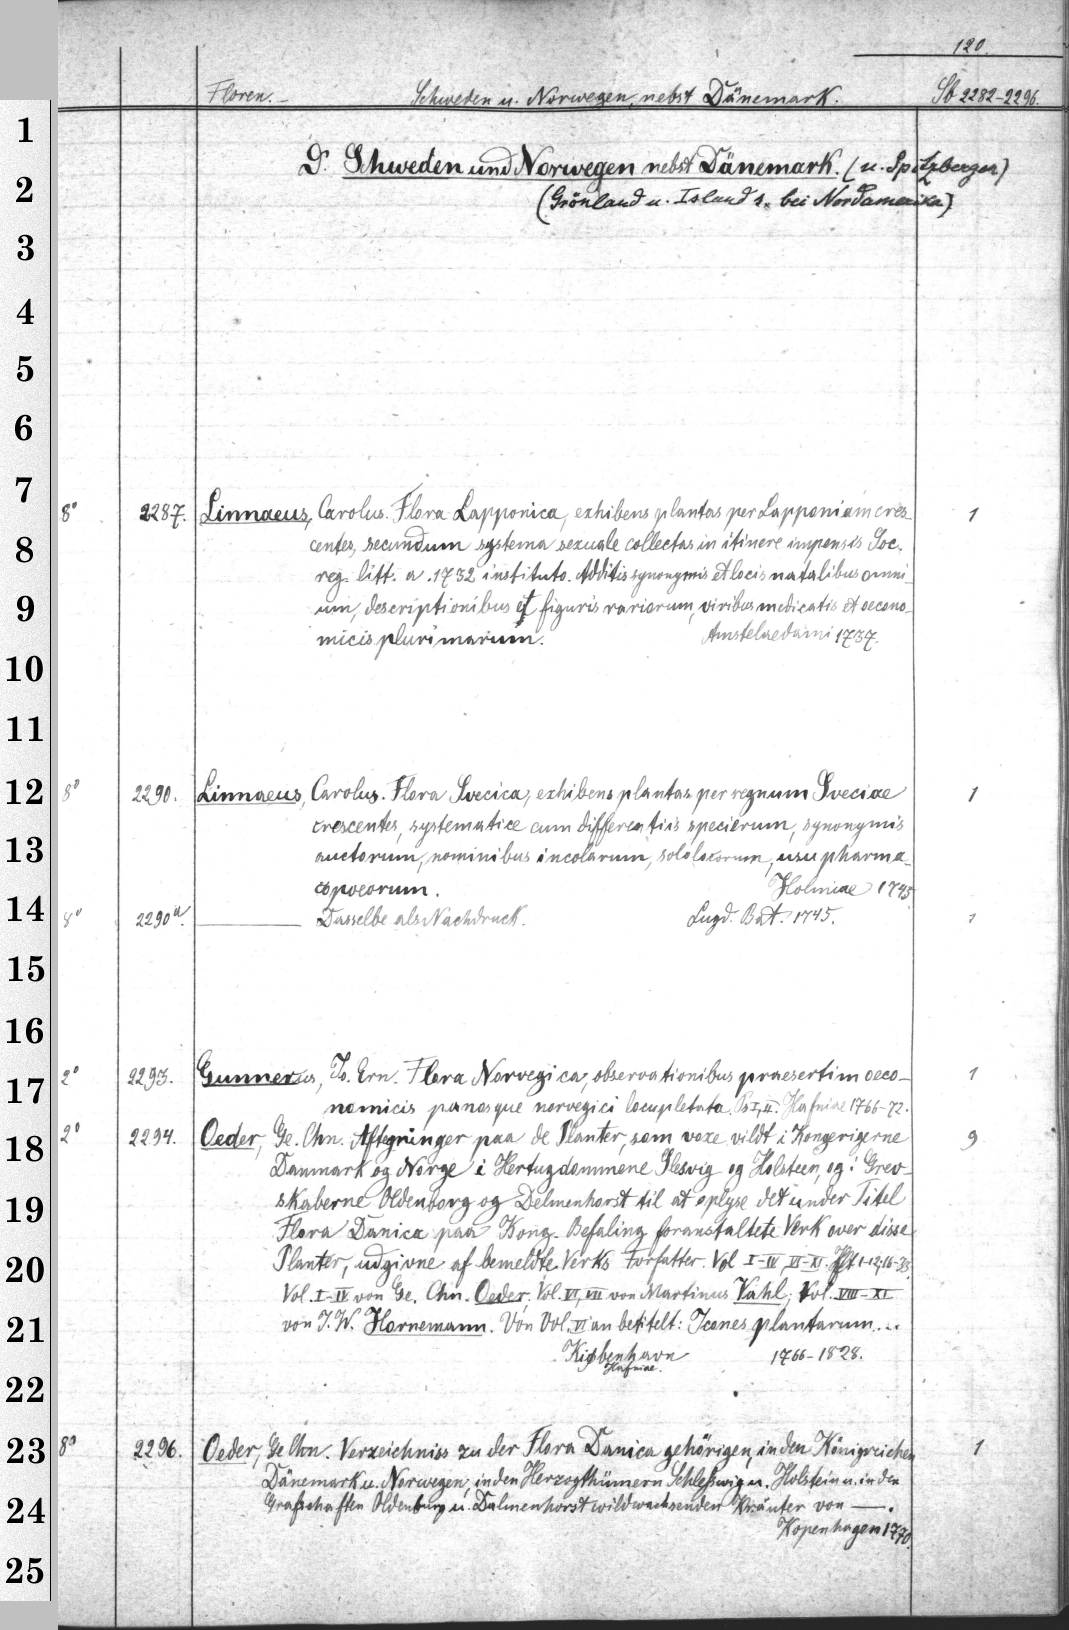 120.
Floren.- Schweden u. Norwegen, nebst Dänemark. Sb 2282-2296.
D. Schweden und Norwegen nebst Dänemark. (u. Spitzbergen)
(Grönland u. Island s. bei Nordamerika)
8° 2287. Linnaeus, Carolus. Flora Lapponica, exhibens plantas per Lapponiam cres- 1
centes, secundum systema sexuale collectas in itinere impensis Soc.
reg. litt. a. 1732 instituto. Additis synonymis et locis natalibus omni-
um, descriptionibus et figuris rariorum, viribus medicatis et oecono-
micis plurimarum. Amstelaedami 1737.
8° 2290. Linnaeus, Carolus. Flora Svecica, exhibens plantas per regnum Sveciae 1
crescentes, systematice cum differentiis specierum, synonymis
auctorum, nominibus incolarum, solo locorum, usu pharma-
copoeorum. Holmiae 1745
8° 2290a. ——— Dasselbe als Nachdruck. Lugd. Bat. 1745. 1
2° 2293. Gunnerus, Jo. Ern. Flora Norvegica, observationibus praesertim oeco- 1
nomicis panosque norvegici locupletata. Ps I, II. Hafniae 1766-72.
2° 2294. Oeder, Ge. Chn. Aftegninger paa de Planter, som voxe vildt i Kongerigerne 9
Danmark og Norge i Hertugdommene Slesvig og Holsteen, og i Grev-
skaberne Oldenborg og Delmenhorst til at oplyse det under Titel
Flora Danica paa Kong. Befaling foranstaltete Verk over disse
Planter, udgivne af bemeldte Verks Forfatter. Vol I-IV, VI-XI. Hft 1-12, 16-33.
Vol. I-IV von Ge. Chn. Oeder, Vol. VI, VII von Martinus Vahl; Vol. VIII-XI
von J. W. Hornemann. Von Vol. VI an betitelt: Icones plantarum...
Kiøbenhavn 1766-1828.
Hafniae.
8° 2296. Oeder, Ge Chn. Verzeichniss zu der Flora Danica gehörigen, in den Königreichen 1
Dänemark u. Norwegen, in den Herzogthümern Schleßwig u. Holstein u. in den
Grafschaften Oldenburg u. Dalmenhorst wildwachsenden Kräuter von ——.
Kopenhagen 1770.
1
2
3
4
5
6
7
8
9
10
11
12
13
14
15
16
17
18
19
20
21
22
23
24
25